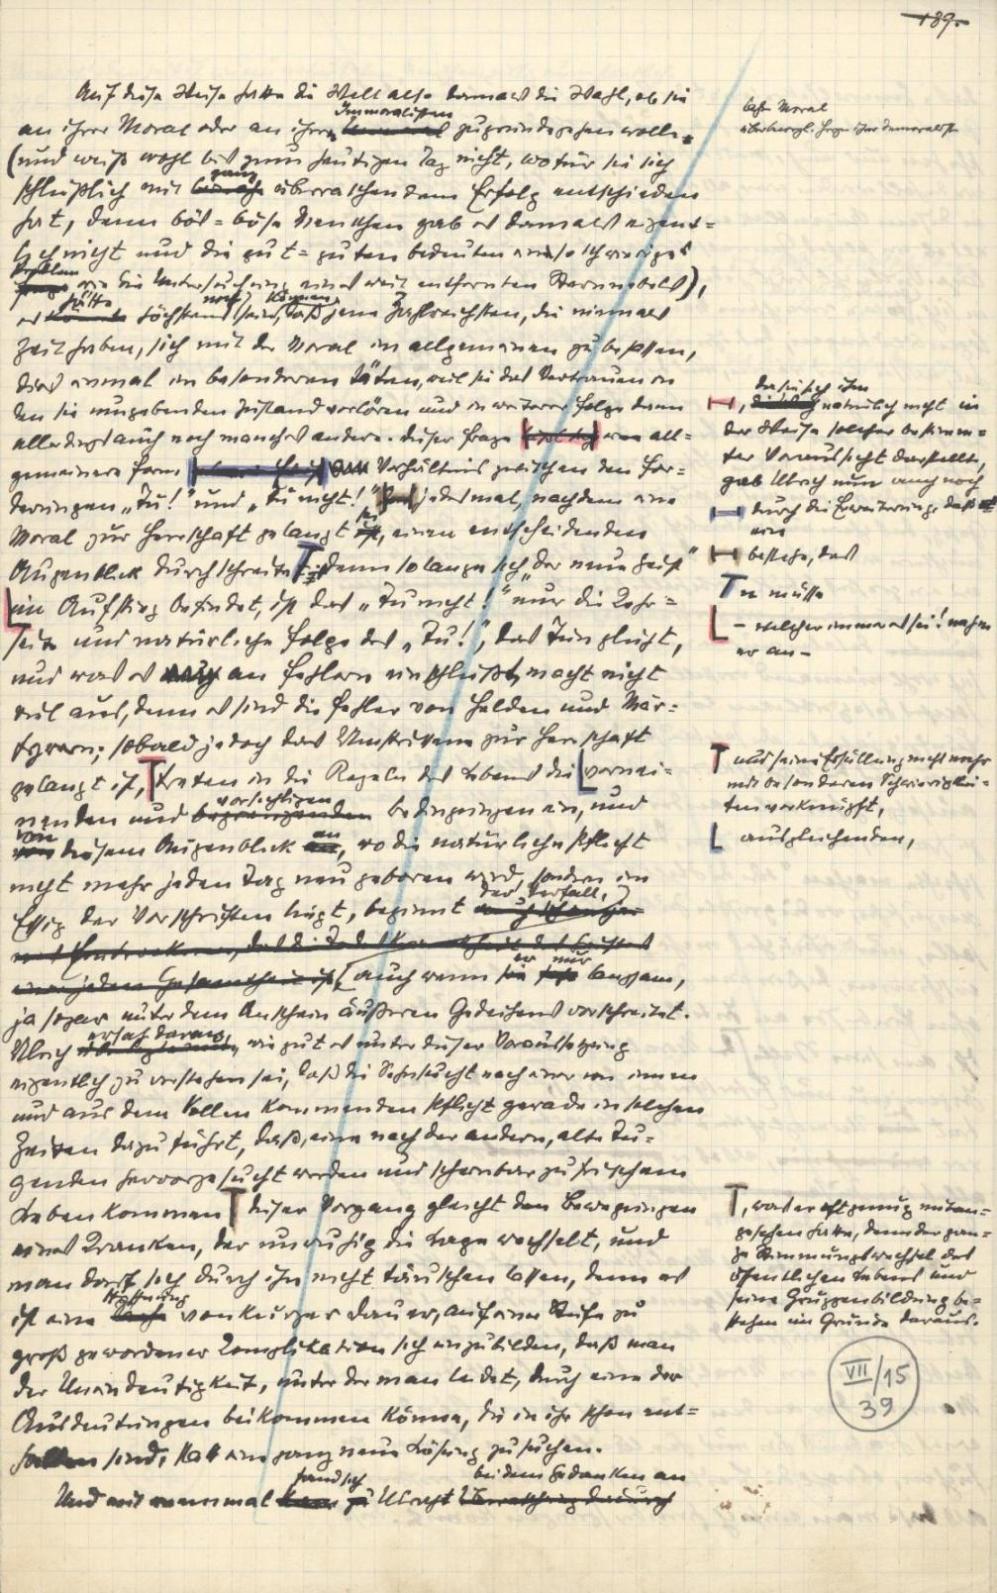 189.
Auf diese Weise hatte die Welt also damals die Wahl, ob sie
an ihrer Moral oder an ihren Immoralisten zugrundegehen wolle.
(und weiß wohl bis zum heutigen Tag nicht, wofür sie sich
schließlich mit ganz überraschendem Erfolg entschieden
hat, denn bös-böse Menschen gab es damals eigent-
lich nicht und die gut-guten bedeuten ein so schwieriges
Problem wie die Untersuchung eines weit entfernten Sternnebels),
es hätte höchstens noch sein können, daß jene Zahlreichsten, die niemals
Zeit haben, sich mit der Moral im allgemeinen zu befassen,
dies einmal im besonderen täten, weil sie das Vertrauen in
den sie umgebenden Zustand verlören und in weiterer Folge dann
allerdings auch noch manches andere. Dieser Frage von all-
gemeinere Form Verhältnis zwischen den For-
derungen „Tu!" und „Tu nicht!" jedesmal, nachdem eine
Moral zur Herrschaft gelangt sei, einen entscheidenden
Augenblick durchschreite denn solange sich „der neue Geist"
im Aufstieg befindet, ist das „Tu nicht!" nur die Kehr-
seite und natürliche Folge des „Tu!", das Tun glüht,
und was es an Fehlern einschließt, macht nicht
viel aus, denn es sind die Fehler von Helden und Mär-
tyrern; sobald jedoch das Umstrittene zur Herrschaft
gelangt ist, treten in die Regeln des Lebens die vernei-
nenden und vorsichtigen Bedingungen ein, und
von diesem Augenblick an, wo die natürliche Pflicht
nicht mehr jeden Tag neu geboren wird, sondern im
Essig der Vorschriften liegt, beginnt der Verfall,
auch wenn er nur langsam,
ja sogar unter dem Anschein äußeren Gedeihens vorschreitet.
Ulrich ersah daraus, wie gut es unter dieser Voraussetzung
eigentlich zu verstehen sei, daß die Sehnsucht nach einer von innen
und aus dem Vollen kommenden Pflicht gerade in solchen
Zeiten dazu führt, daß, eine nach der andern, alte Tu-
genden hervorgesucht werden und scheinbar zu frischem
Leben kommen dieser Vorgang gleicht den Bewegungen
eines Kranken, der unruhig die Lage wechselt, und
man darf sich durch ihn nicht täuschen lassen, denn es
ist eine Hoffnung von kurzer Dauer, auf einer Stufe zu
groß gewordener Komplikation sich einzubilden, daß man
der Uneindeutigkeit, unter der man leidet, durch eine der
Ausdeutungen beikommen könne, die in ihr schon ent-
halten sind, statt eine ganz neue Lösung zu suchen.
Und mit einemmal fand sich Ulrich bei dem Gedanken an
Moral
natürlich nicht in
der Weise solcher bestimm-
ter Voraussicht darstellte,
gab Ulrich nun auch noch
durch die Erweiterung, daß
ein
bestehe, das
n müsse
– welcher immer es sei! nahm
er an –
und seine Erfüllung nicht mehr
mit besonderen Schwierigkei-
ten verknüpft,
ausgleichenden,
, was er oft genug mitan-
gesehen hatte, denn der gan-
ze Stimmungswechsel des
öffentlichen Lebens und
seine Gruppenbildung be-
stehen im Grunde daraus.
VII/15
39